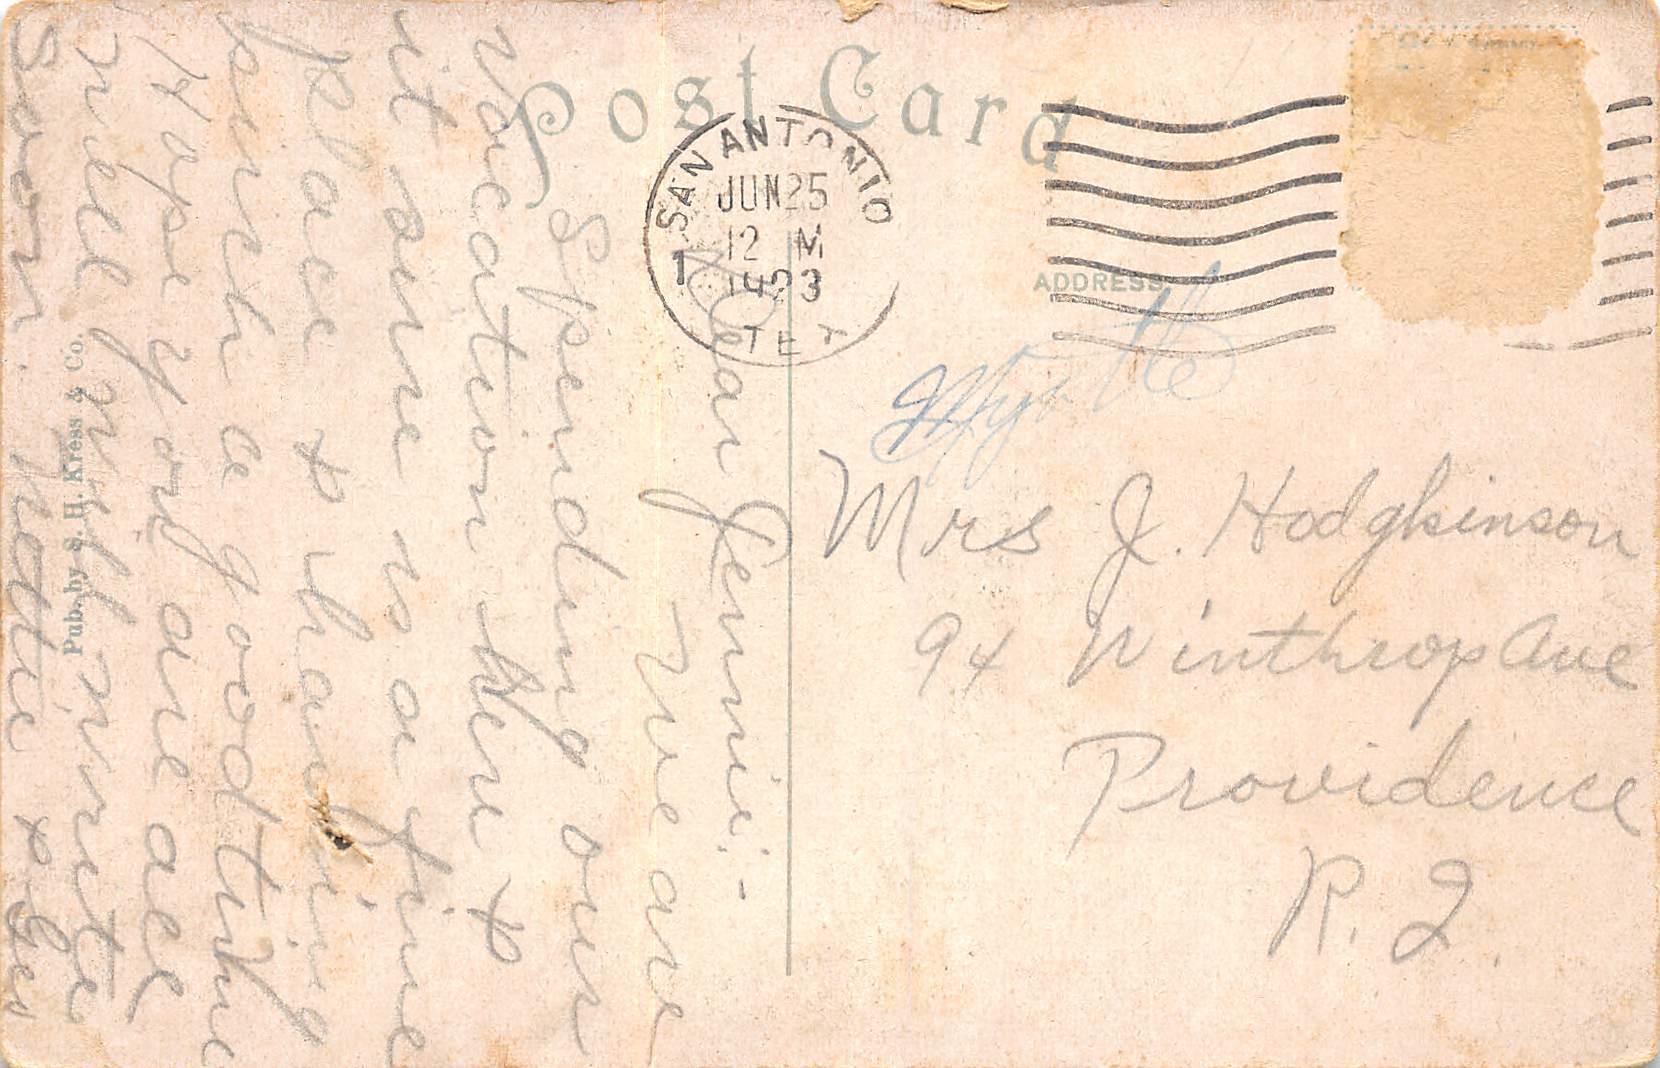 Post Card
SAN ANTONIO
JUN 25
12 M
1923
1
TEX
ADDRESS
Myrtle
Mrs J. Hodgkinson
94 Winthrop Ave
Providence
R. I.
Dear Jennie:-
We are
Spending our
vacation here &
it sure is a fine
place & having
such a good time
Hope you are all
well will write
Soon. Hattie &
Pub. by S. H. Kress & Co.